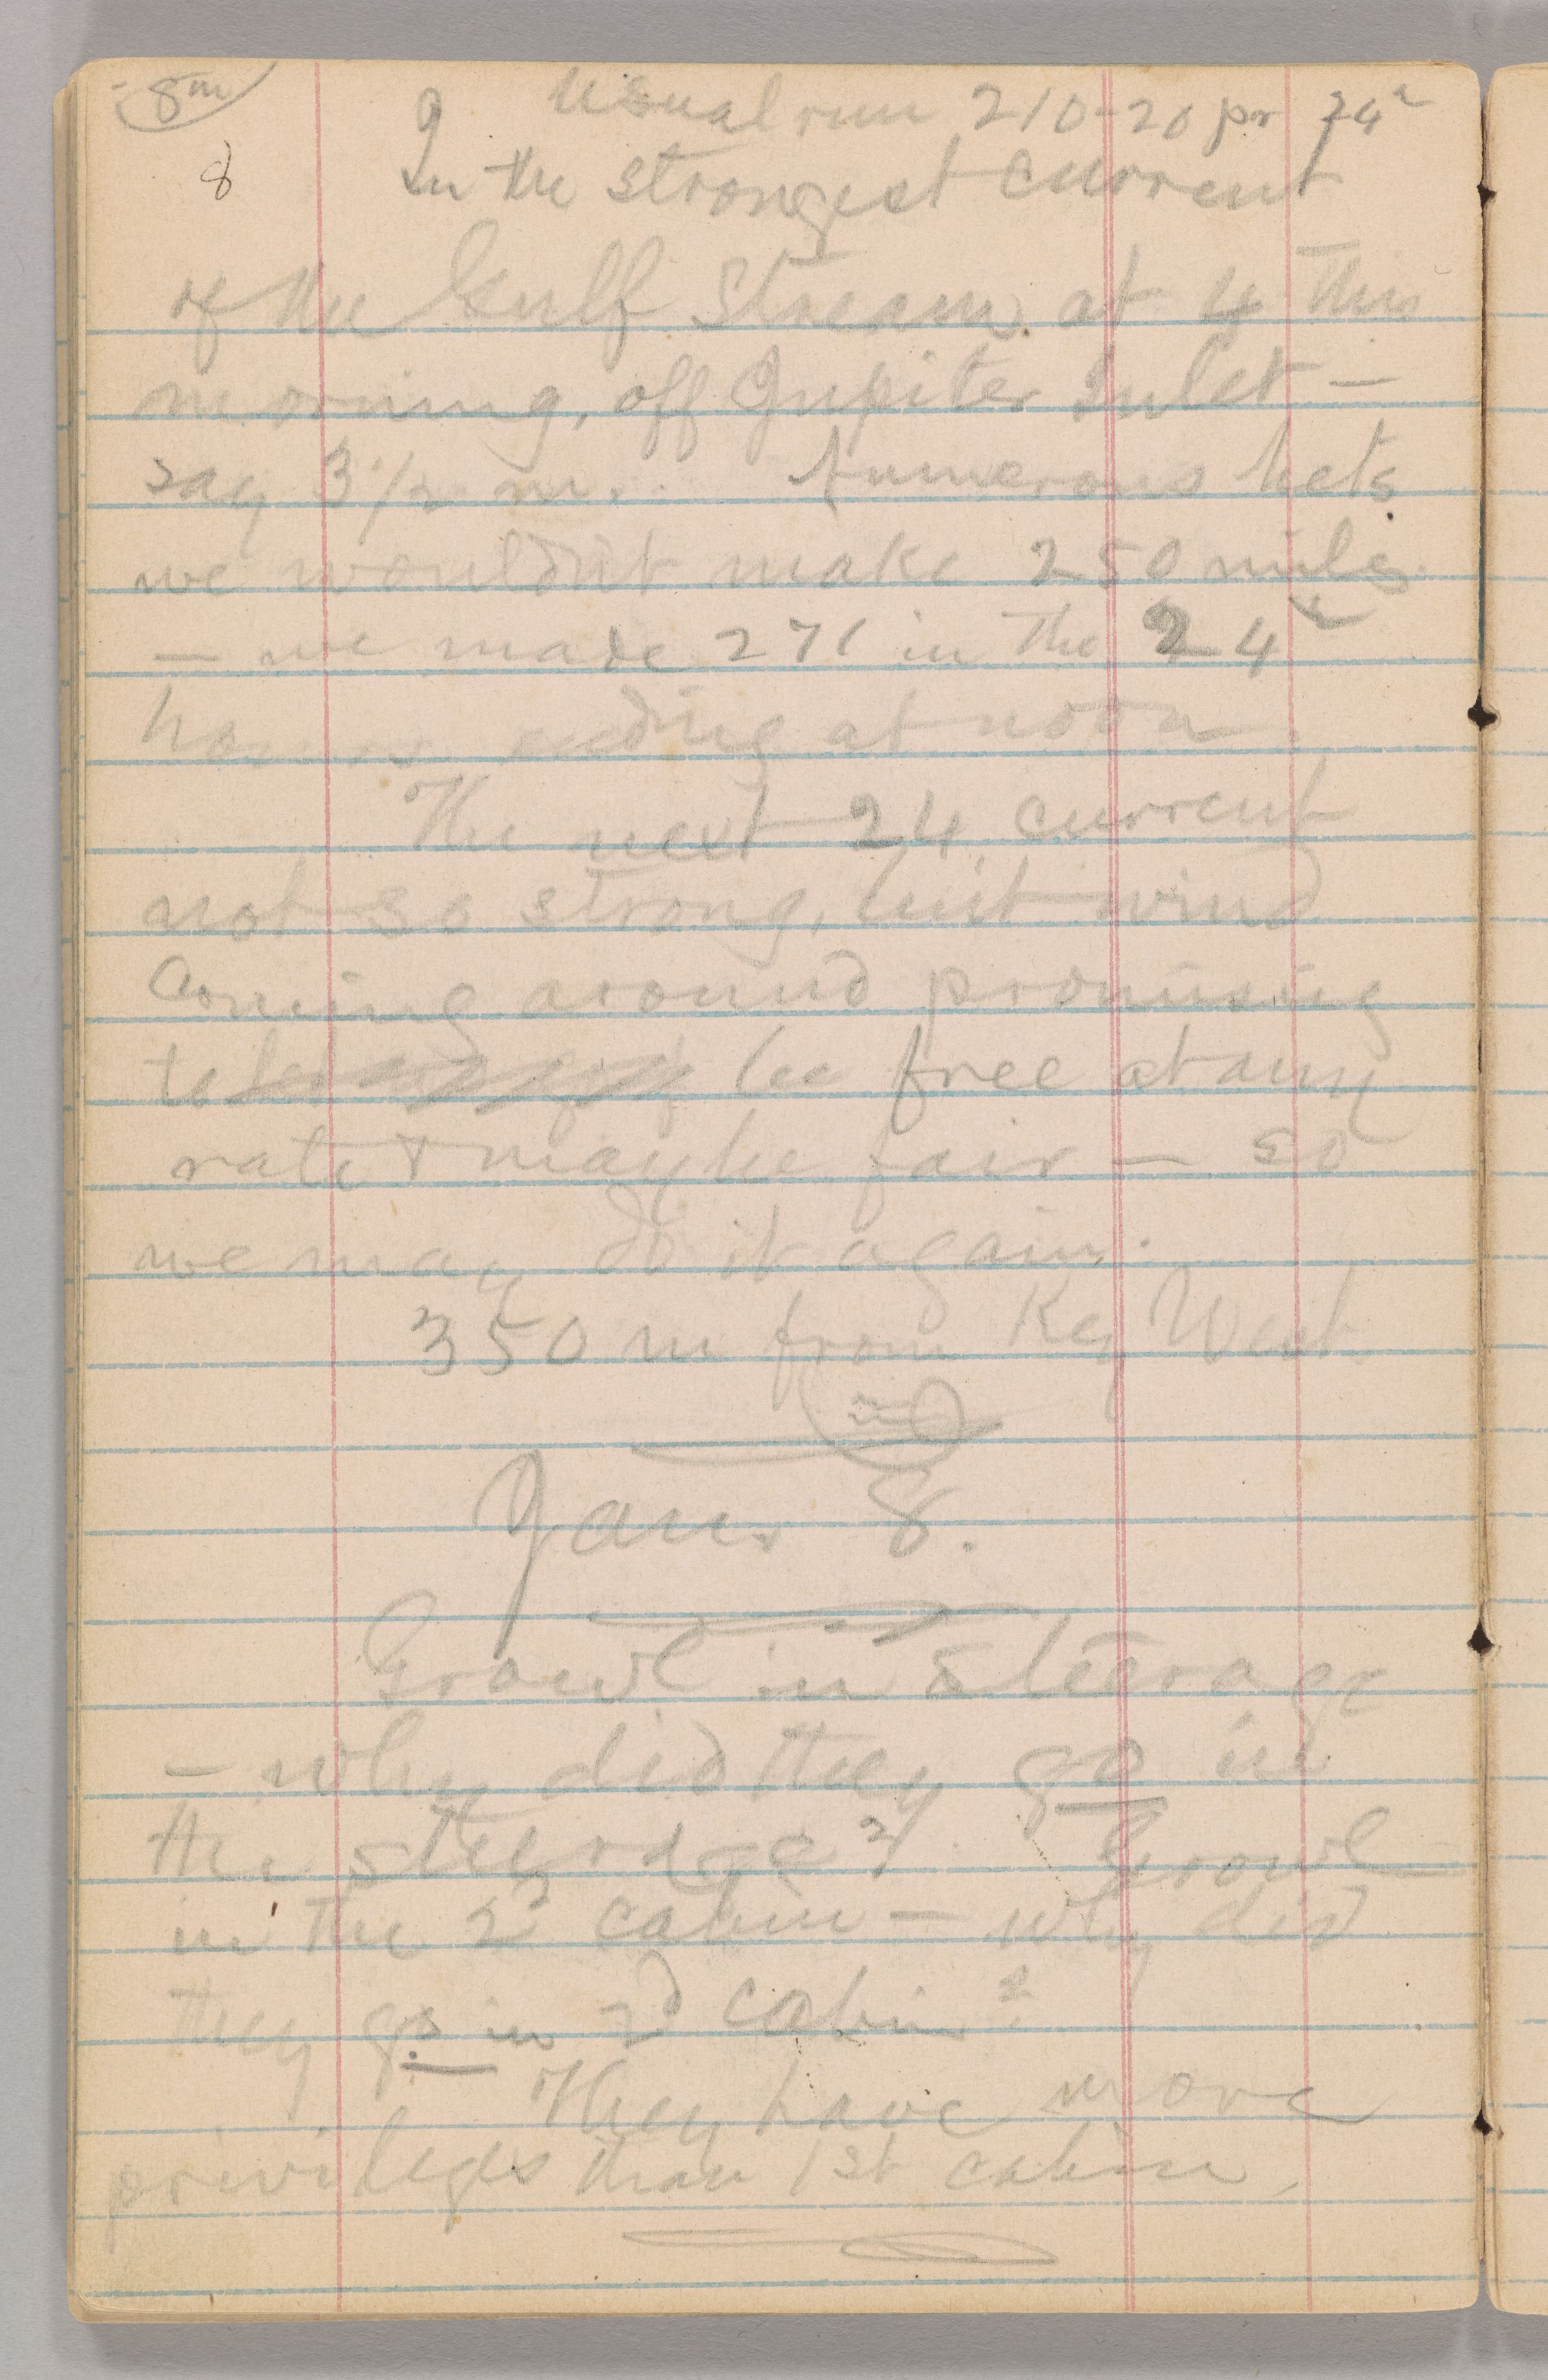 8m
8
Usual run 210-20 pr 24
In the strongest current
of the Gulf Stream at 4 this
morning, off Jupiter Inlet —
say 3 1/2 m. Numerous bets
we wouldn't make 250 miles
— we made 271 in the 24
hours ending at noon.
The next 24 current
not so strong, but wind
coming around promising
to be free at any
rate & maybe fair — so
we may do it again.
350 m from Key West
Jan. 8.
Growl in steerage
— why did they go in
the steerage? Growl
in the 2d cabin — why did
they go in 2d cabin?
They have more
privileges than 1st cabin.